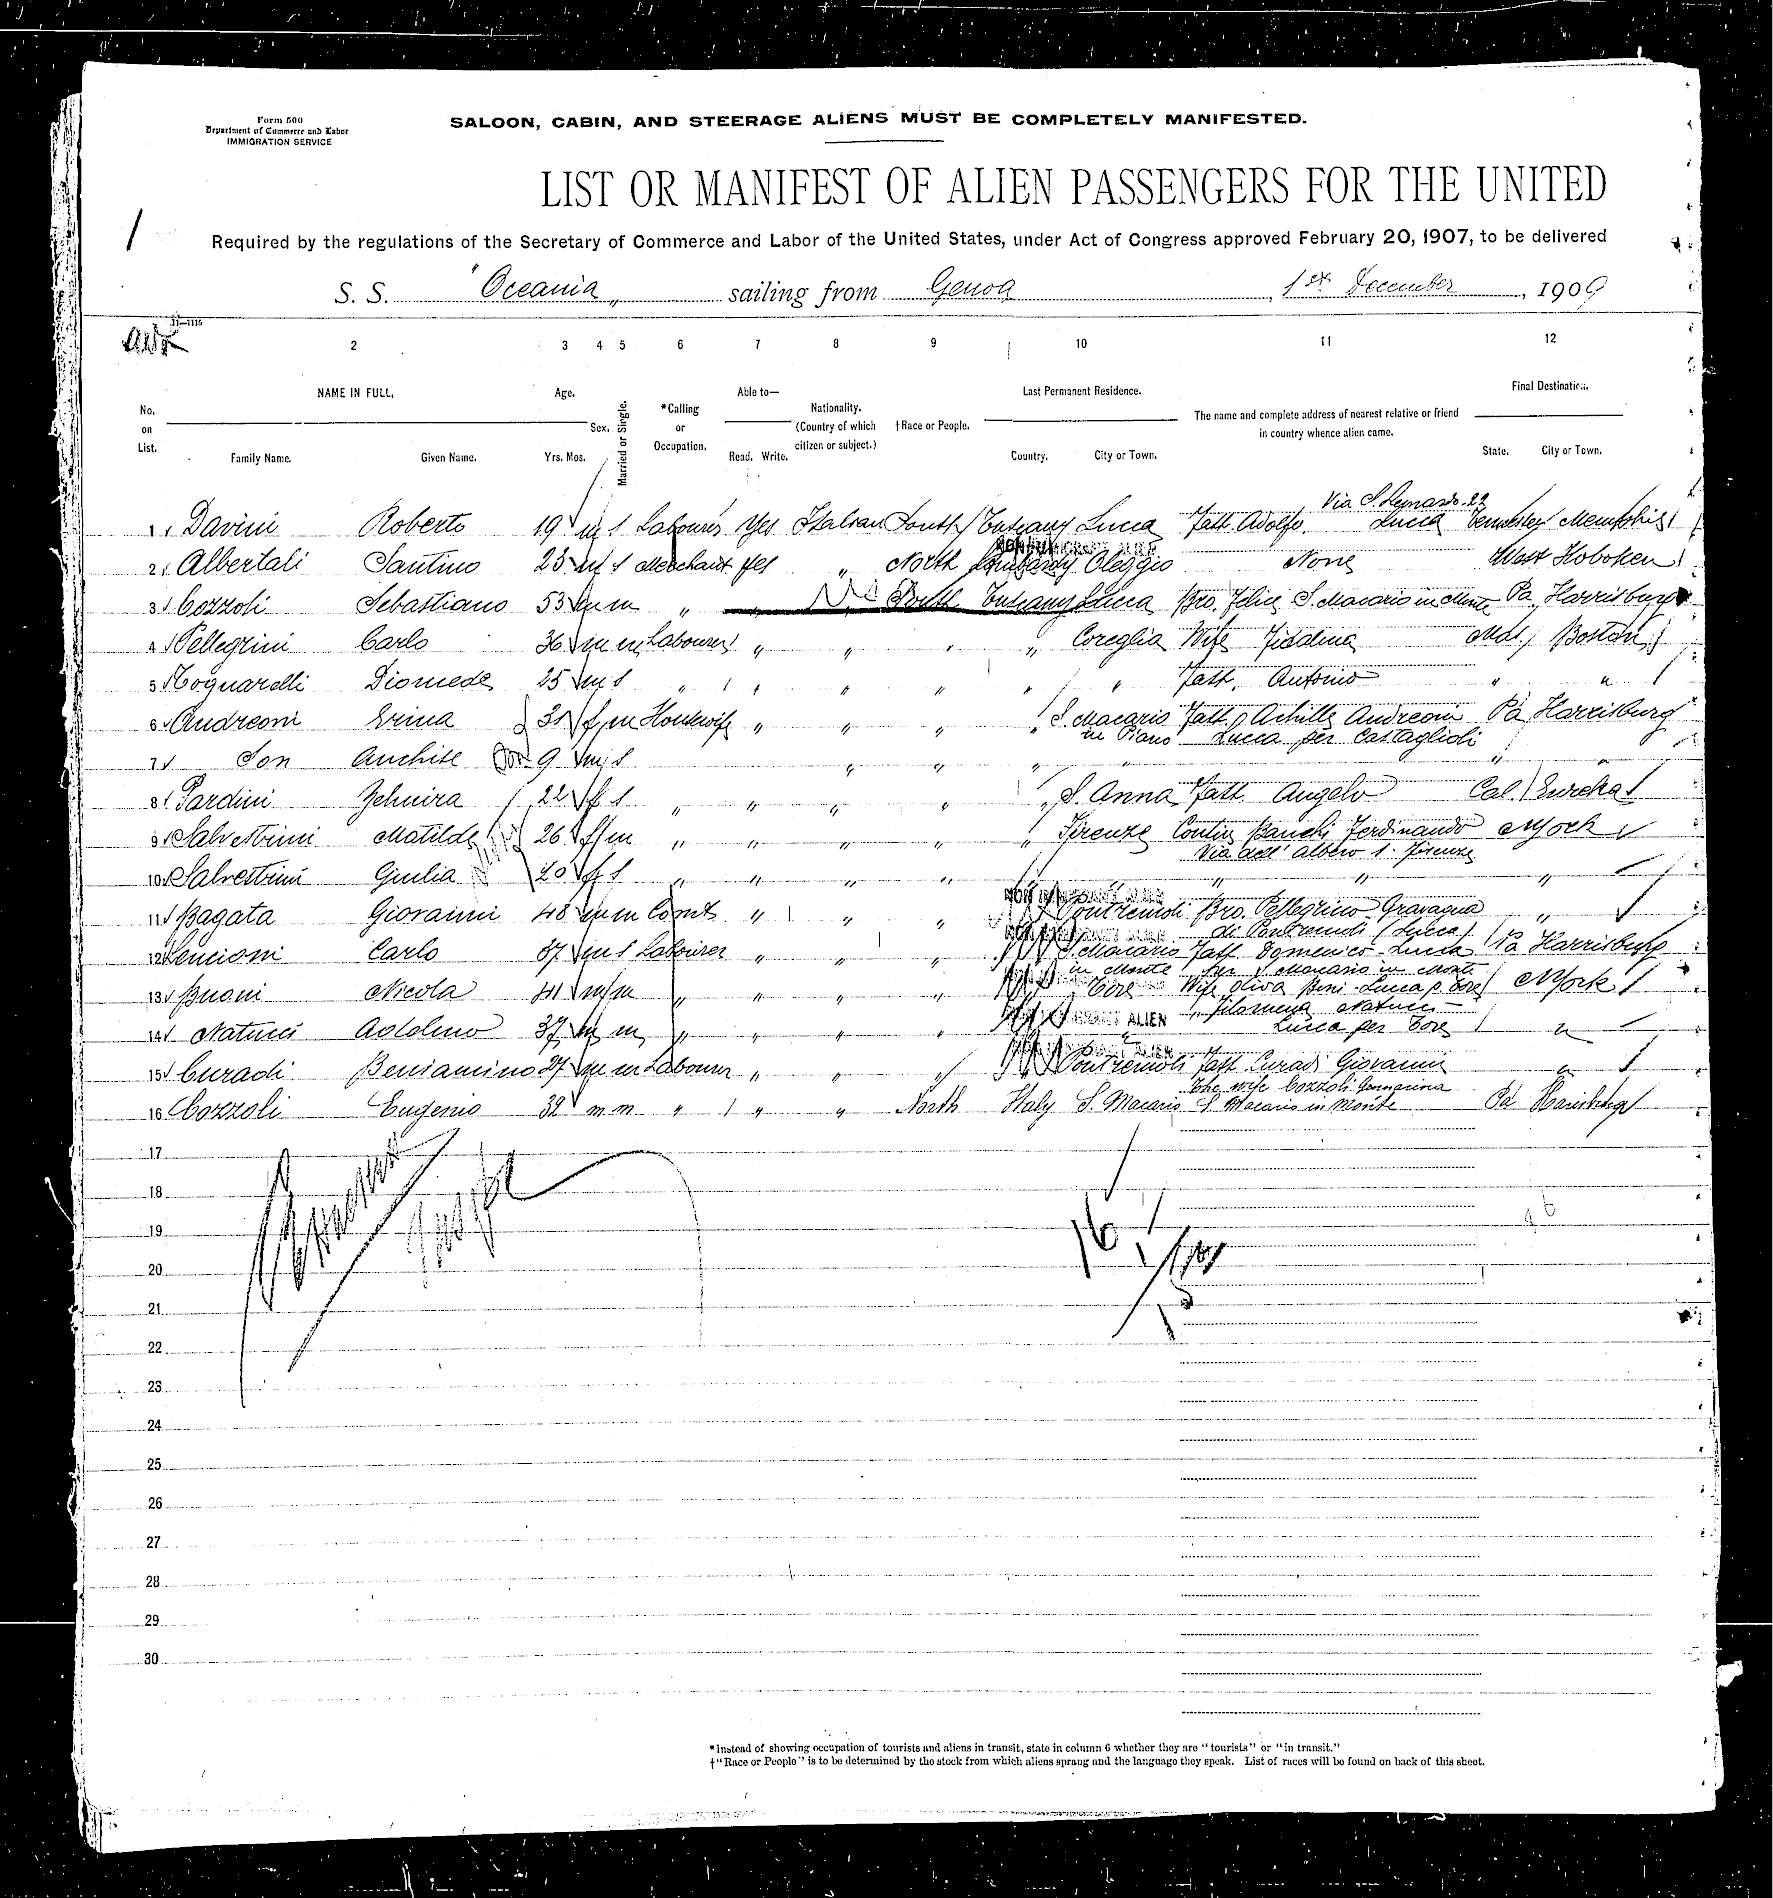 Form 500
Department of Commerce and Labor
IMMIGRATION SERVICE
SALOON, CABIN, AND STEERAGE ALIENS MUST BE COMPLETELY MANIFESTED.
LIST OR MANIFEST OF ALIEN PASSENGERS FOR THE UNITED
1
Required by the regulations of the Secretary of Commerce and Labor of the United States, under Act of Congress approved February 20, 1907, to be delivered
S. S. "Oceania" sailing from Genoa, 1st December, 1909
11—1115
2 3 4 5 6 7 8 9 10 11 12
No. on List.
NAME IN FULL.
Family Name. Given Name.
Age.
Yrs. Mos.
Sex.
Married or Single.
*Calling or Occupation.
Able to—
Read. Write.
Nationality. (Country of which citizen or subject.)
†Race or People.
Last Permanent Residence.
Country. City or Town.
The name and complete address of nearest relative or friend in country whence alien came.
Final Destination.
State. City or Town.
Via S.
1 Davini Roberto 19 m s Labourer Yes Italian South Tuscany Lucca Fath. Adolfo Lucca Memphis
2 Albertali Santino 23 m s Merchant yes " North Lombardy Oleggio None West Hoboken
3 Cozzoli Sebastiano 53 m m " No South Tuscany Lucca Bro. Felice S. Macario in Monte Pa Harrisburg
4 Pellegrini Carlo 36 m m Labourer " " " " Coreglia Wife Boston
5 Tognarelli Diomede 25 m s " " " " " " Fath. Antonio " "
6 Andreoni Erina 31 f m Housewife " " " " S. Macario Fath. Achille Andreoni Pa Harrisburg
in Piano Lucca per
7 Son Anchise 9 m s " " " " " "
8 Pardini Zelmira 22 f s " " " " " S. Anna Fath. Angelo Cal. Eureka
9 Salvestrini Matilde 26 f m " " " " " Firenze Bianchi Ferdinando NYork
Via dell' albero 1. Firenze
10 Salvestrini Giulia 20 f s " " " " " " "
11 Bagata Giovanni 48 m m " " " Pontremoli Bro. Pellegrino Gravagna "
di Pontremoli (Lucca)
12 Lencioni Carlo 37 m s Labourer " " " S. Macario Fath. Domenico Lucca Pa Harrisburg
in Monte per S. Macario in Monte
13 Nicola 41 m m " " " " Wife NYork
" Filomena Natucci
14 Natucci Adolmo 37 m m " " " " ALIEN Lucca per "
15 Curadi Beniamino 27 m m Labourer " " " Pontremoli Fath. Curadi Giovanni "
The wife Cozzoli
16 Cozzoli Eugenio 32 m m " " " North Italy S. Macario S. Macario in Monte Pa Harrisburg
17
18
19
20
21
22
23
24
25
26
27
28
29
30
16
*Instead of showing occupation of tourists and aliens in transit, state in column 6 whether they are "tourists" or "in transit."
†"Race or People" is to be determined by the stock from which aliens sprang and the language they speak. List of races will be found on back of this sheet.